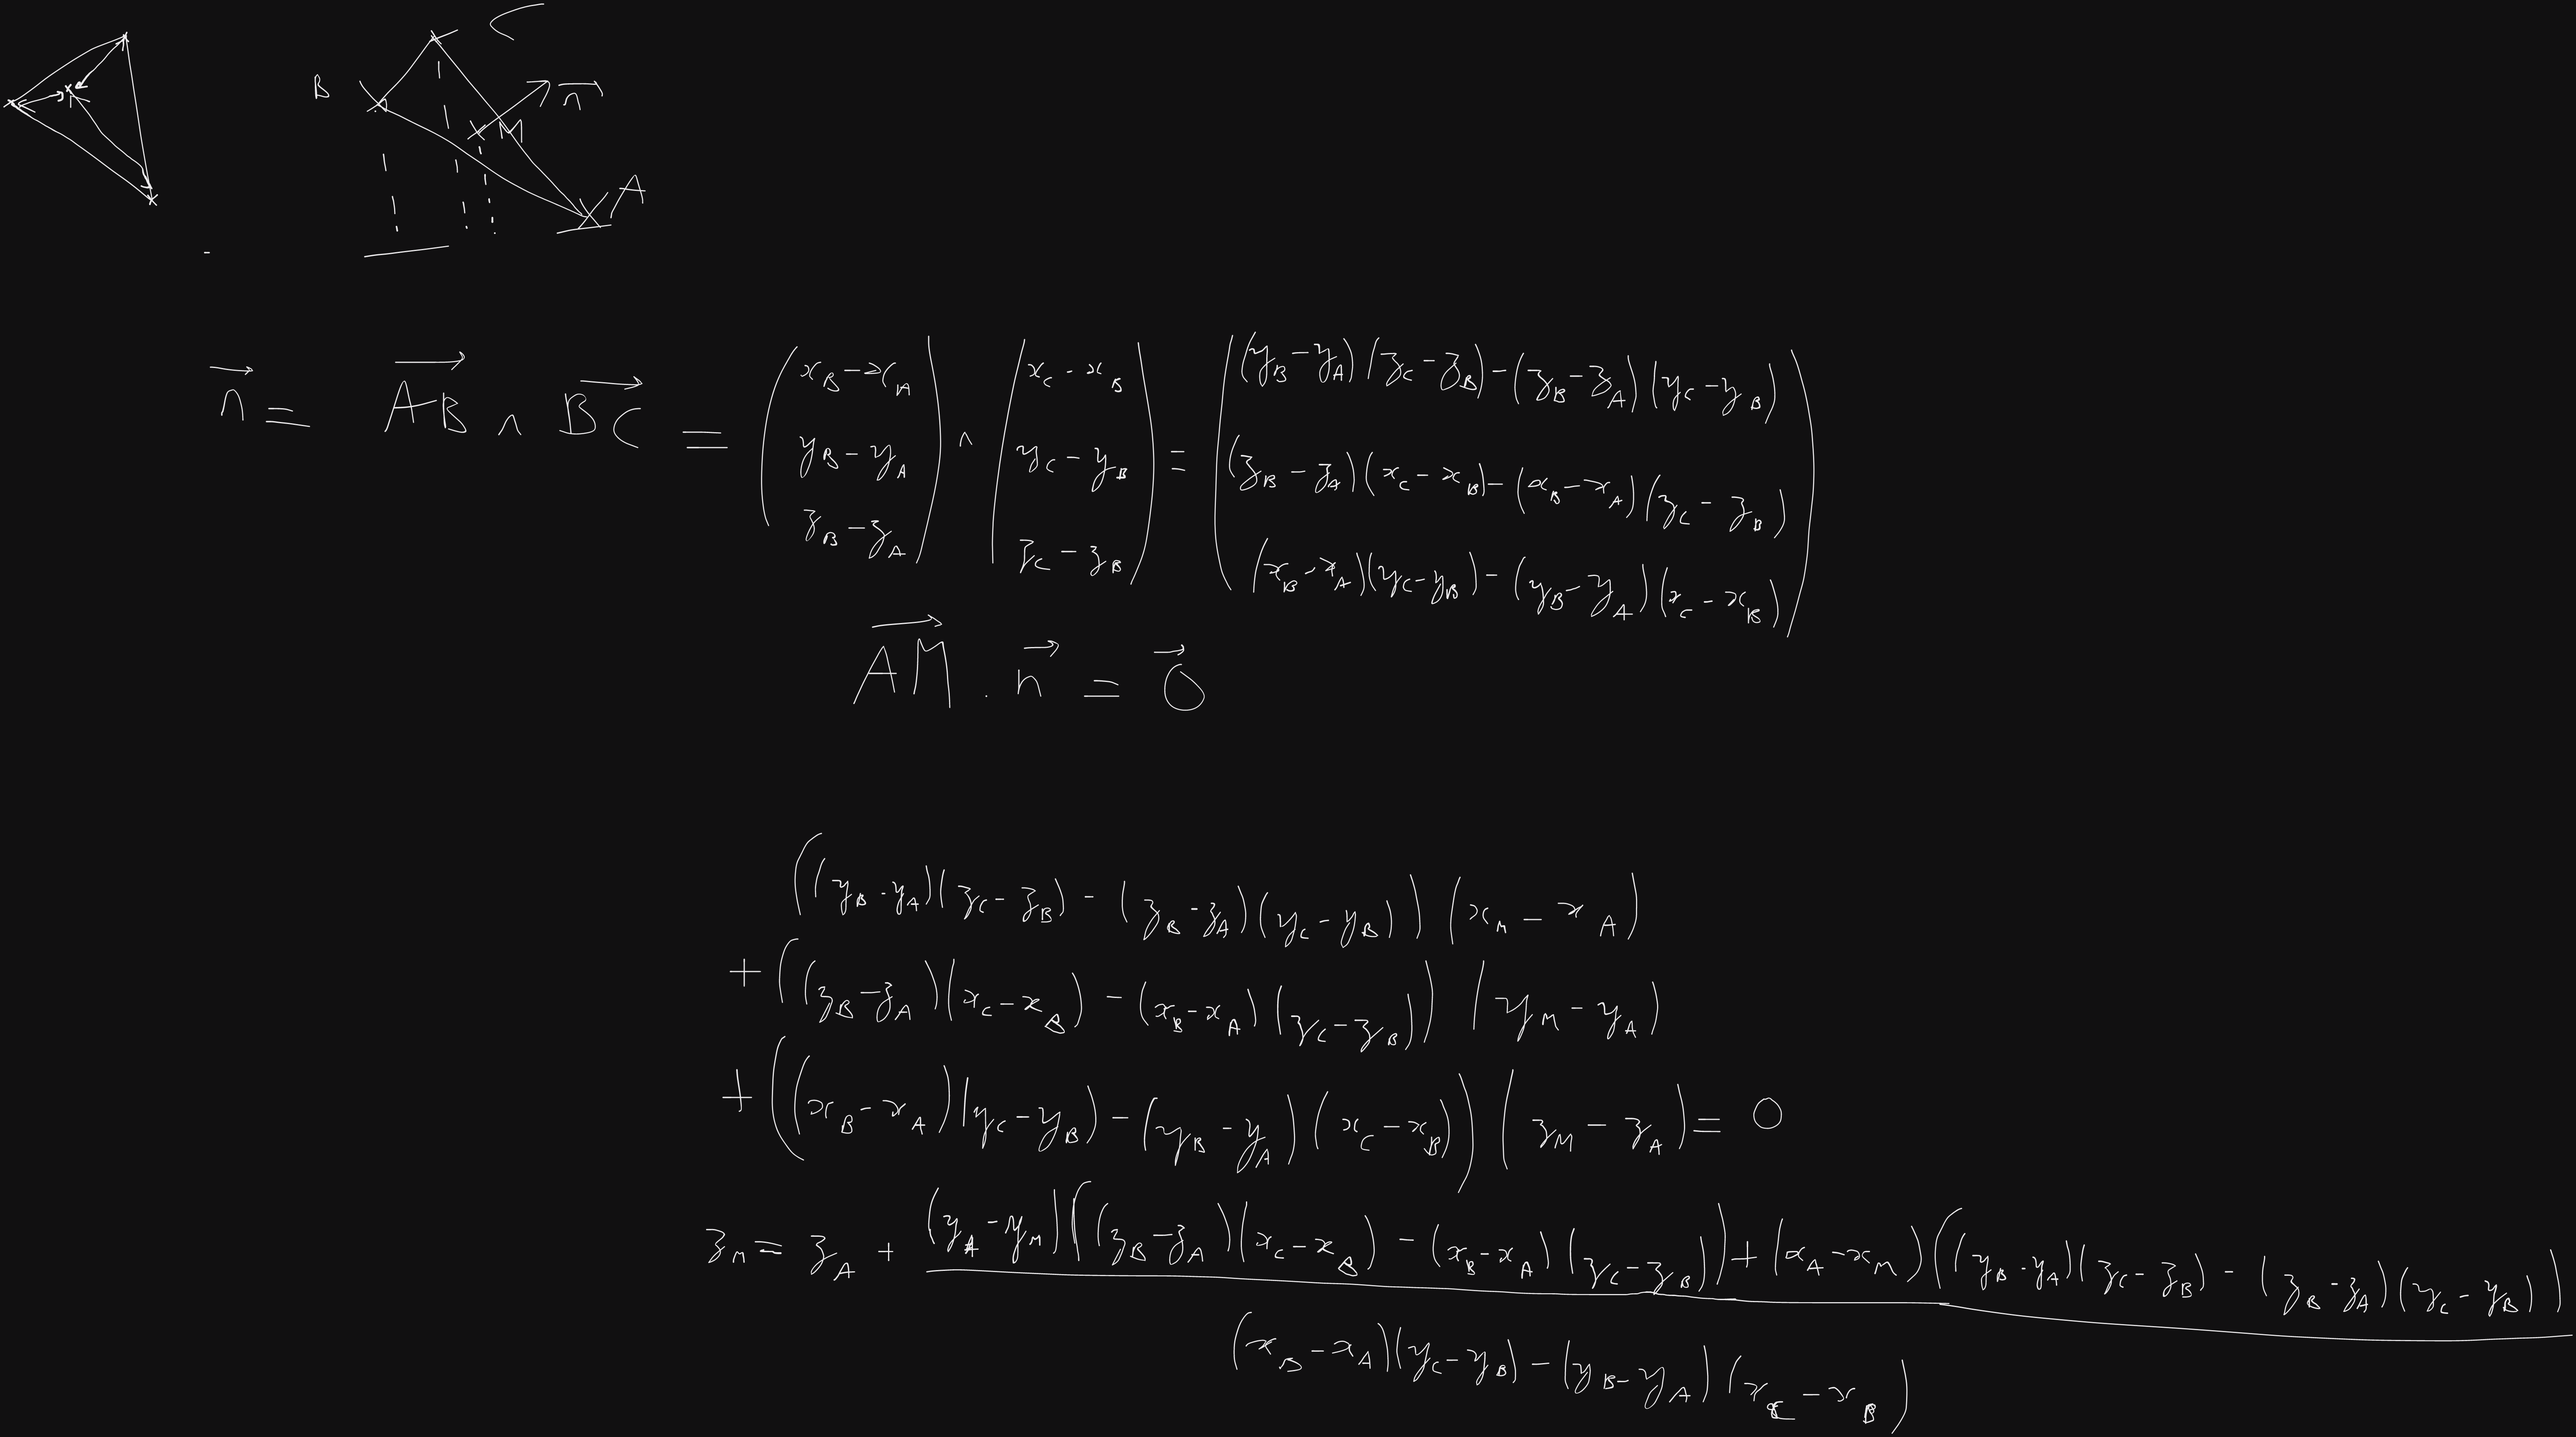 C
B
n⃗
M
A
n⃗ = AB⃗ ∧ BC⃗ = (x_B − x_A, y_B − y_A, z_B − z_A) ∧ (x_C − x_B, y_C − y_B, z_C − z_B) = ((y_B − y_A)(z_C − z_B) − (z_B − z_A)(y_C − y_B), (z_B − z_A)(x_C − x_B) − (x_B − x_A)(z_C − z_B), (x_B − x_A)(y_C − y_B) − (y_B − y_A)(x_C − x_B))
AM⃗ . n⃗ = 0⃗
((y_B − y_A)(z_C − z_B) − (z_B − z_A)(y_C − y_B)) (x_M − x_A)
+ ((z_B − z_A)(x_C − x_B) − (x_B − x_A)(z_C − z_B)) (y_M − y_A)
+ ((x_B − x_A)(y_C − y_B) − (y_B − y_A)(x_C − x_B)) (z_M − z_A) = 0
z_M = z_A + (y_A − y_M)((z_B − z_A)(x_C − x_B) − (x_B − x_A)(z_C − z_B)) + (x_A − x_M)((y_B − y_A)(z_C − z_B) − (z_B − z_A)(y_C − y_B))
(x_B − x_A)(y_C − y_B) − (y_B − y_A)(x_C − x_B)